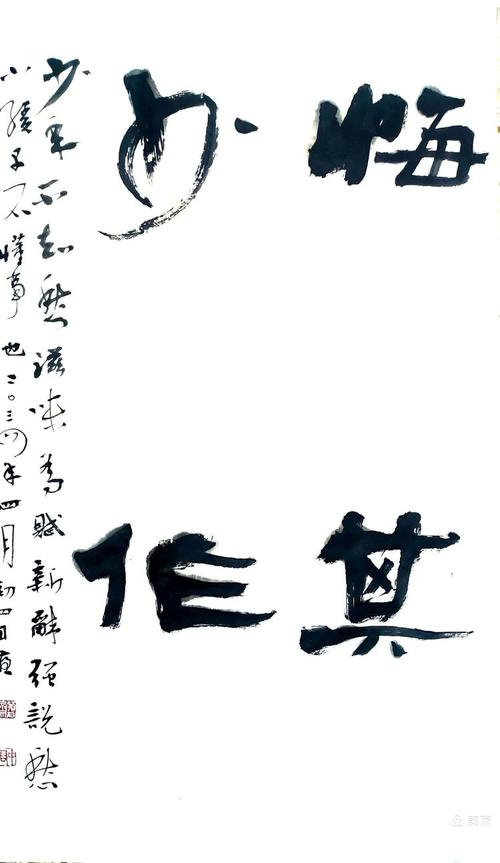 悔其
少作
少年不知愁滋味為賦新辭强說愁
小孩子不懂事也二〇二四年四月初四日
美篇